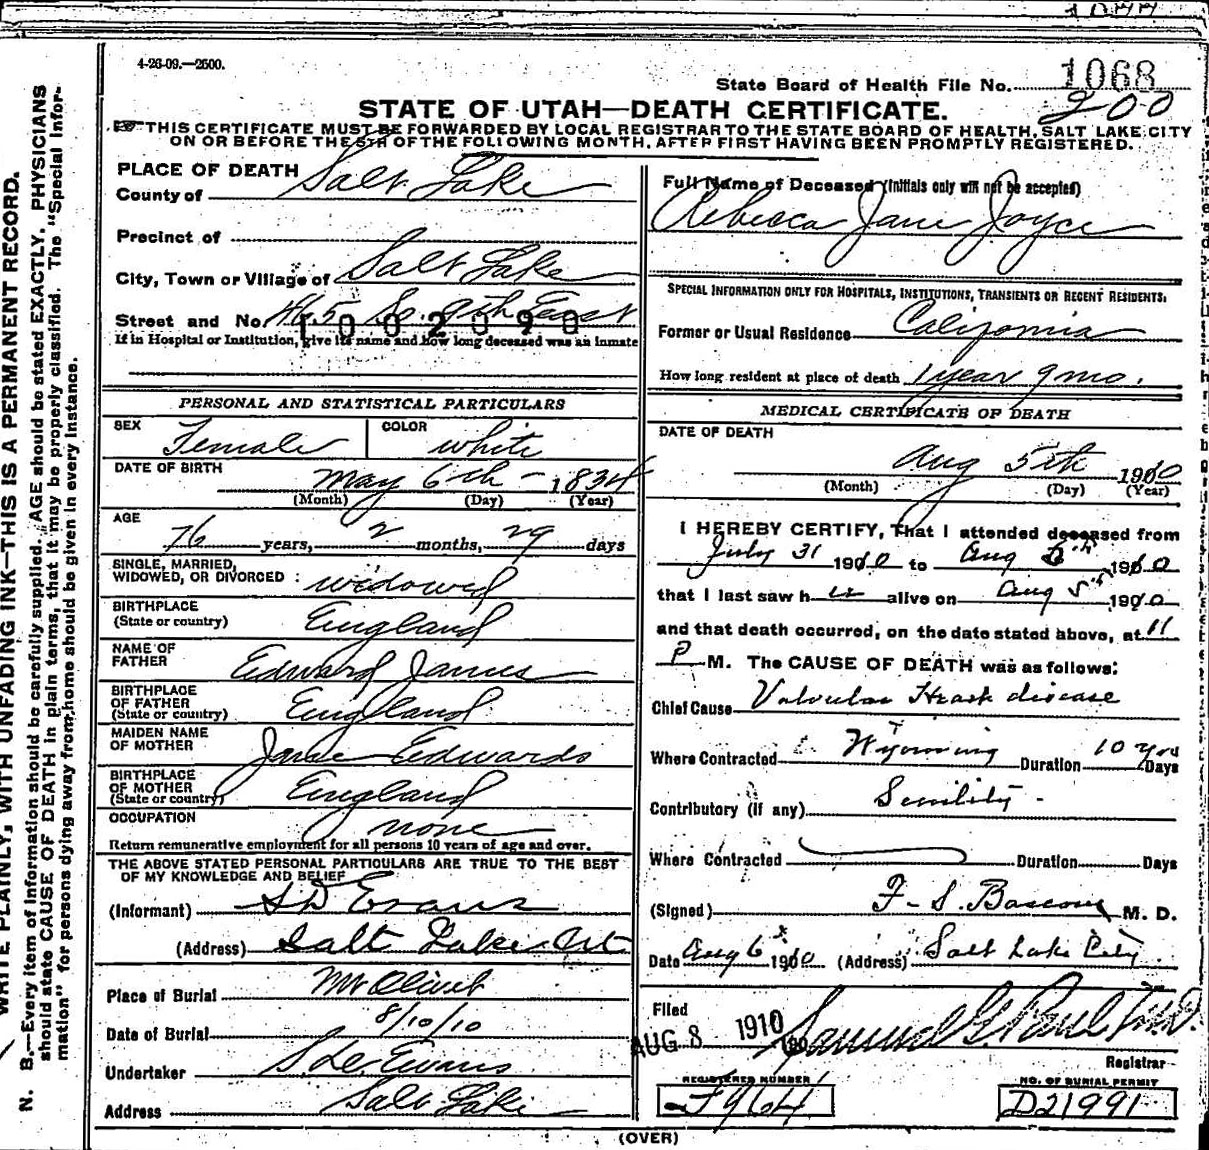 4-26-09.—2500.
State Board of Health File No. 1068
200
STATE OF UTAH—DEATH CERTIFICATE.
THIS CERTIFICATE MUST BE FORWARDED BY LOCAL REGISTRAR TO THE STATE BOARD OF HEALTH, SALT LAKE CITY
ON OR BEFORE THE 5TH OF THE FOLLOWING MONTH, AFTER FIRST HAVING BEEN PROMPTLY REGISTERED.
WRITE PLAINLY, WITH UNFADING INK—THIS IS A PERMANENT RECORD.
N. B.—Every item of information should be carefully supplied. AGE should be stated EXACTLY. PHYSICIANS
should state CAUSE OF DEATH in plain terms, that it may be properly classified. The "Special Infor-
mation" for persons dying away from home should be given in every instance.
PLACE OF DEATH
County of Salt Lake
Precinct of
City, Town or Village of Salt Lake
Street and No. 465 So. 9th East
1002090
If in Hospital or Institution, give its name and how long deceased was an inmate
PERSONAL AND STATISTICAL PARTICULARS
SEX Female COLOR white
DATE OF BIRTH May 6th - 1834
(Month) (Day) (Year)
AGE 76 years, 2 months, 29 days
SINGLE, MARRIED,
WIDOWED, OR DIVORCED : widowed
BIRTHPLACE
(State or country) England
NAME OF
FATHER Edward James
BIRTHPLACE
OF FATHER
(State or country) England
MAIDEN NAME
OF MOTHER Jane Edwards
BIRTHPLACE
OF MOTHER
(State or country) England
OCCUPATION none
Return remunerative employment for all persons 10 years of age and over.
THE ABOVE STATED PERSONAL PARTICULARS ARE TRUE TO THE BEST
OF MY KNOWLEDGE AND BELIEF
(Informant) S D Evans
(Address) Salt Lake Ut
Place of Burial Mt Olivet
Date of Burial 8/10/10
Undertaker S. D. Evans
Address Salt Lake
Full Name of Deceased (Initials only will not be accepted)
Rebecca Jane Joyce
SPECIAL INFORMATION ONLY FOR HOSPITALS, INSTITUTIONS, TRANSIENTS OR RECENT RESIDENTS:
Former or Usual Residence California
How long resident at place of death 1 year 9 mo.
MEDICAL CERTIFICATE OF DEATH
DATE OF DEATH
Aug 5th 1910
(Month) (Day) (Year)
I HEREBY CERTIFY, That I attended deceased from
July 31 1910 to Aug 5th 1910
that I last saw her alive on Aug 5th 1910
and that death occurred, on the date stated above, at 11
P M. The CAUSE OF DEATH was as follows:
Chief Cause Valvular Heart disease
Where Contracted Wyoming Duration 10 yrs Days
Contributory (if any) Senility -
Where Contracted Duration Days
(Signed) F. S. Bascom M. D.
Date Aug 6 1910 (Address) Salt Lake City
Filed
AUG 8 1910 Samuel G. Paul M.D.
Registrar
REGISTERED NUMBER
F964
NO. OF BURIAL PERMIT
D21991
(OVER)